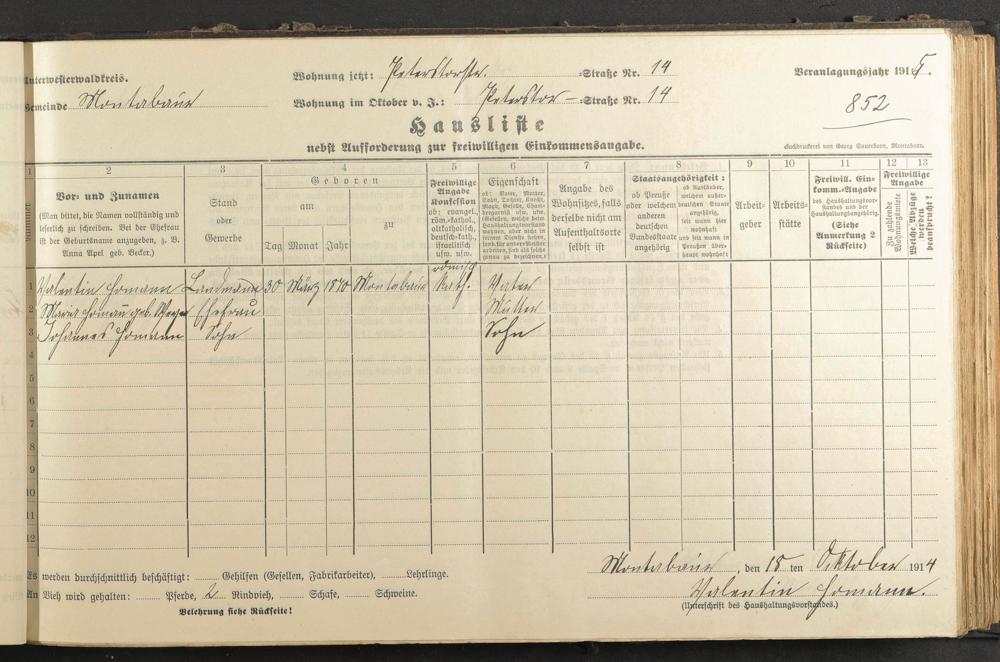 Unterwesterwaldkreis.
Wohnung jetzt: Peterstorstr. -Straße Nr. 14
Veranlagungsjahr 1915.
Gemeinde Montabaur
Wohnung im Oktober v. J.: Peterstor -Straße Nr. 14
852
Hausliste
nebst Aufforderung zur freiwilligen Einkommensangabe.
Buchdruckerei von Georg Sauerborn, Montabaur.
1 2 3 4 5 6 7 8 9 10 11 12 13
Nummer
Vor- und Zunamen
(Man bittet, die Namen vollständig und
leserlich zu schreiben. Bei der Ehefrau
ist der Geburtsname anzugeben, z. B.
Anna Apel geb. Becker.)
Stand
oder
Gewerbe
Geboren
am
zu
Tag Monat Jahr
Freiwillige
Angabe
Konfession
ob: evangel.,
röm.-kathol.,
altkatholisch,
deutsch-kath.,
israelitisch
usw. usw.
Eigenschaft
ob: Vater, Mutter,
Sohn, Tochter, Knecht,
Magd, Geselle,
Angabe des
Wohnsitzes, falls
derselbe nicht am
Aufenthaltsorte
selbst ist
Staatsangehörigkeit:
ob Preuße
oder welchem
anderen
deutschen
Bundesstaate
angehörig
ob Ausländer,
welchem außer-
deutschen Staate
angehörig,
seit wann hier
wohnhaft
und seit wann in
Preußen über-
haupt wohnhaft
Arbeit-
geber
Arbeits-
stätte
Freiwill. Ein-
komm.-Angabe
des Haushaltungsvor-
standes und der
Haushaltungsangehörig.
(Siehe
Anmerkung 2
Rückseite)
Freiwillige
Angabe
Zu zahlende
Wohnungsmiete
Welche Abzüge
werden
beansprucht?
1 Valentin Homann Landmann 30 März 1870 Montabaur römisch kath. Vater
2 Maria Homann geb. Ehefrau Mutter
3 Johannes Homann Sohn Sohn
4
5
6
7
8
9
10
11
12
Es werden durchschnittlich beschäftigt: Gehilfen (Gesellen, Fabrikarbeiter), Lehrlinge.
Montabaur, den 18 ten Oktober 1914
An Vieh wird gehalten: Pferde, 2 Rindvieh, Schafe, Schweine.
Valentin Homann.
(Unterschrift des Haushaltungsvorstandes.)
Belehrung siehe Rückseite!